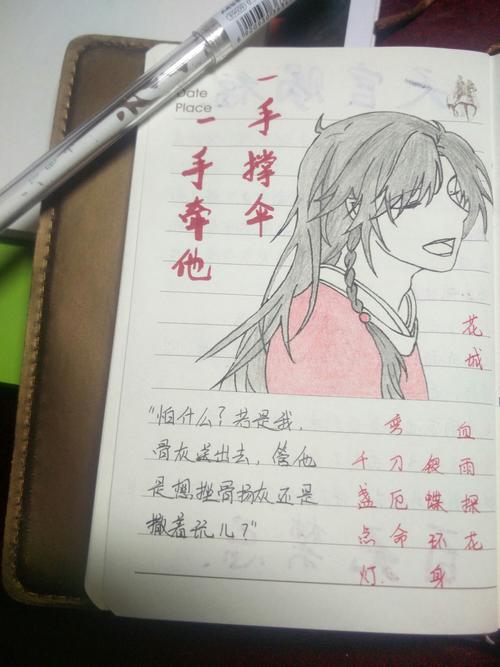 Date
Place
一手撑伞
一手牵他
花城
"怕什么？若是我，
骨灰送出去，管他
是想挫骨扬灰还是
撒着玩儿？"
血雨探花
银蝶环身
弯刀厄命
千盏点灯.